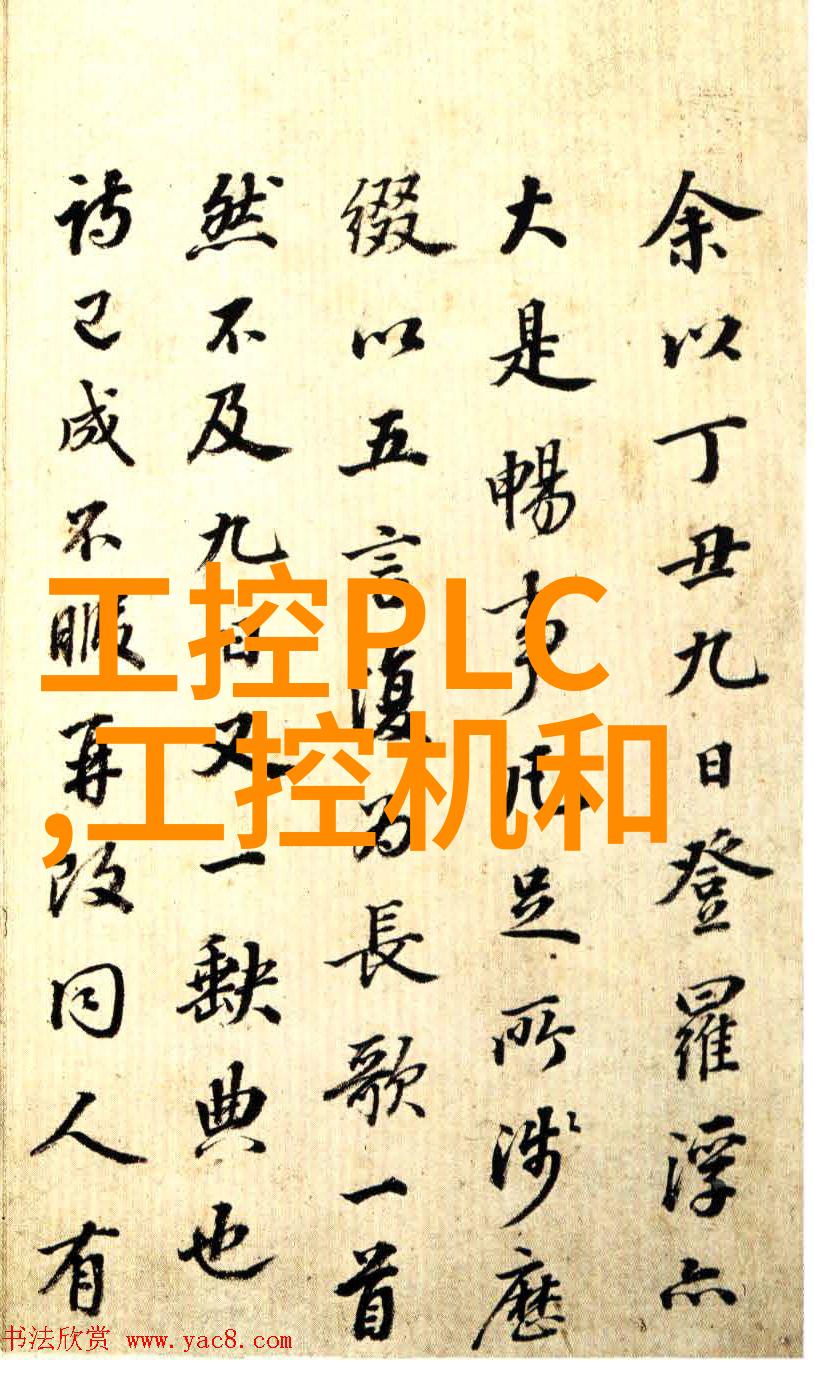 余以丁丑九日登羅浮亦
大是暢事足所涉歷
綴以五言復為長歌一首
然不及九日又一缺典也
詩已成不暇再改同人有
工控PLC
,工控机和
书法欣赏 www.yac8.com